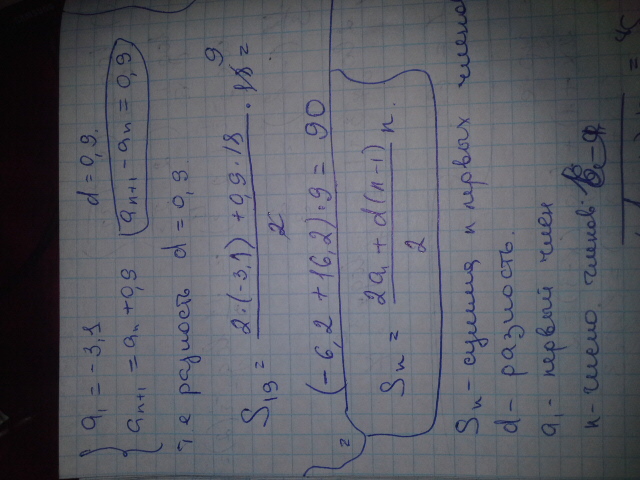 a₁ = -3,1 d = 0,9.
aₙ₊₁ = aₙ + 0,9 aₙ₊₁ - aₙ = 0,9
т, е разность d = 0,9.
S₁₉ = 2·(-3,1) + 0,9·18 / 2 · 18 = 9
= (-6,2 + 16,2)·9 = 90
Sₙ = 2a₁ + d(n-1) / 2 n.
Sₙ - сумма n первых членов
d - разность.
a₁ - первый член
n - число членов.